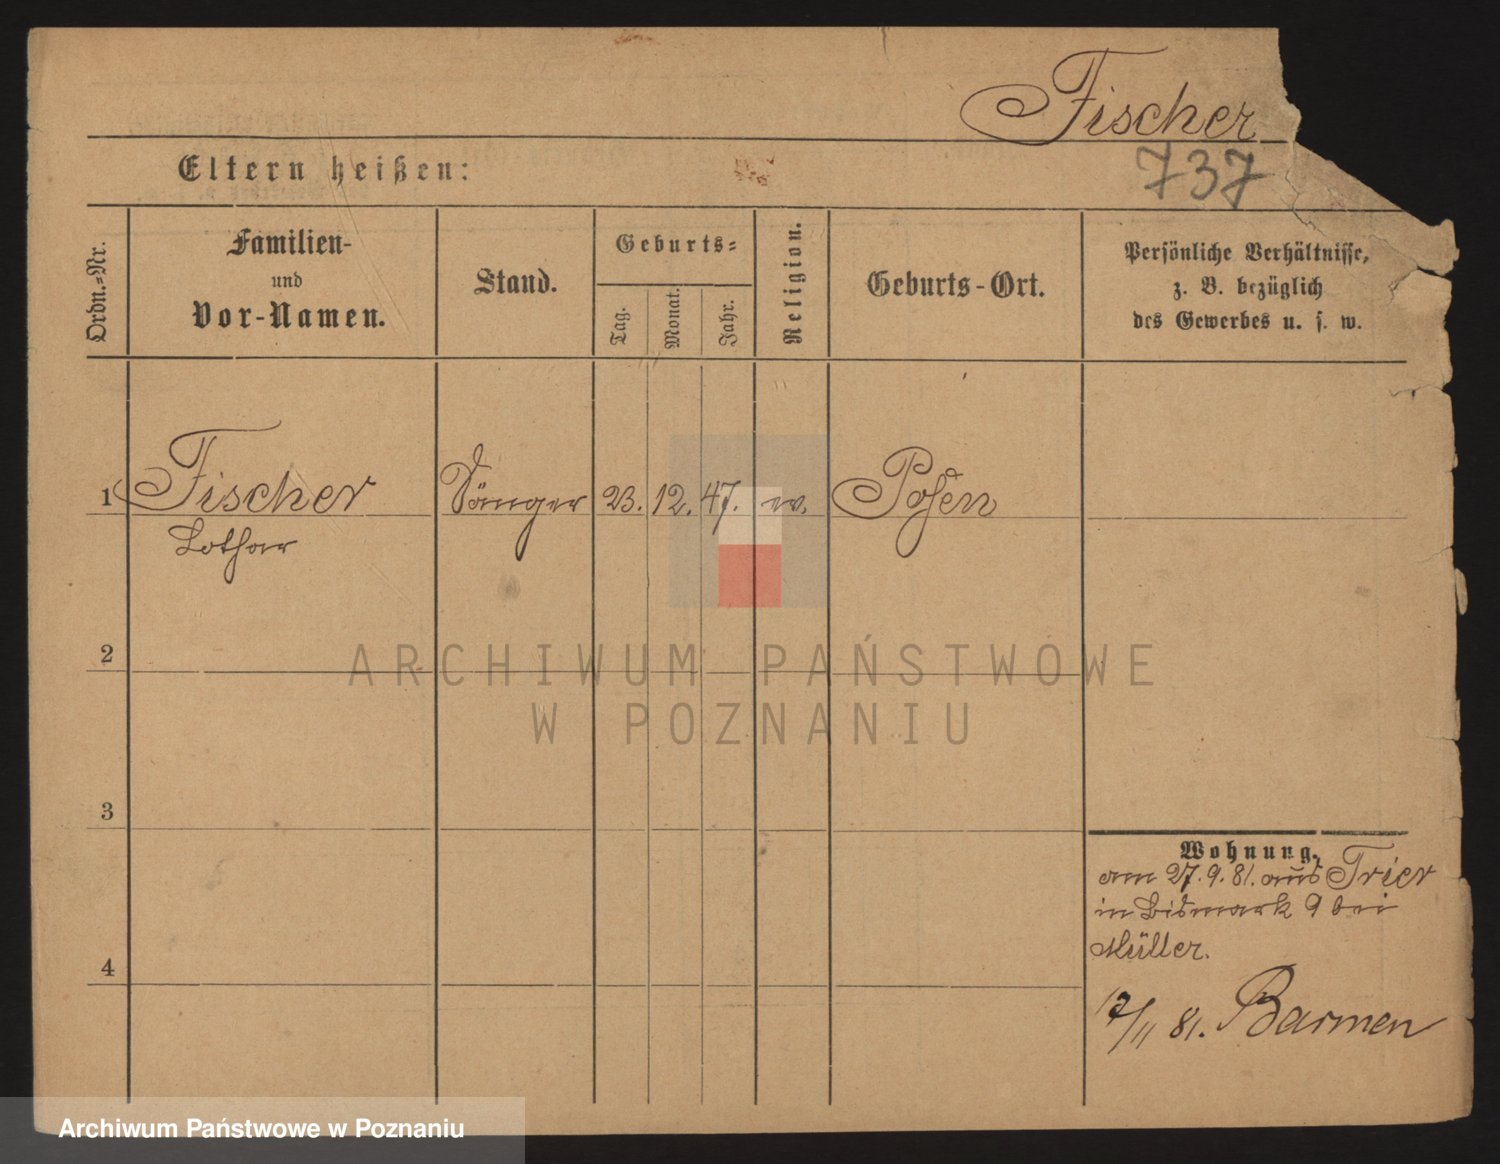 Fischer
737
Eltern heißen:
Ordn.-Nr.
Familien-
und
Vor-Namen.
Stand.
Geburts-
Tag.
Monat.
Jahr.
Religion.
Geburts-Ort.
Persönliche Verhältnisse,
z. B. bezüglich
des Gewerbes u. s. w.
1 Fischer Sänger 23. 12. 47. ev. Posen
Lothar
2
3
4
Wohnung.
am 27. 9. 81. aus Trier
in Bismark 9 bei
Müller.
17/11 81. Barmen
ARCHIWUM PAŃSTWOWE
W POZNANIU
Archiwum Państwowe w Poznaniu